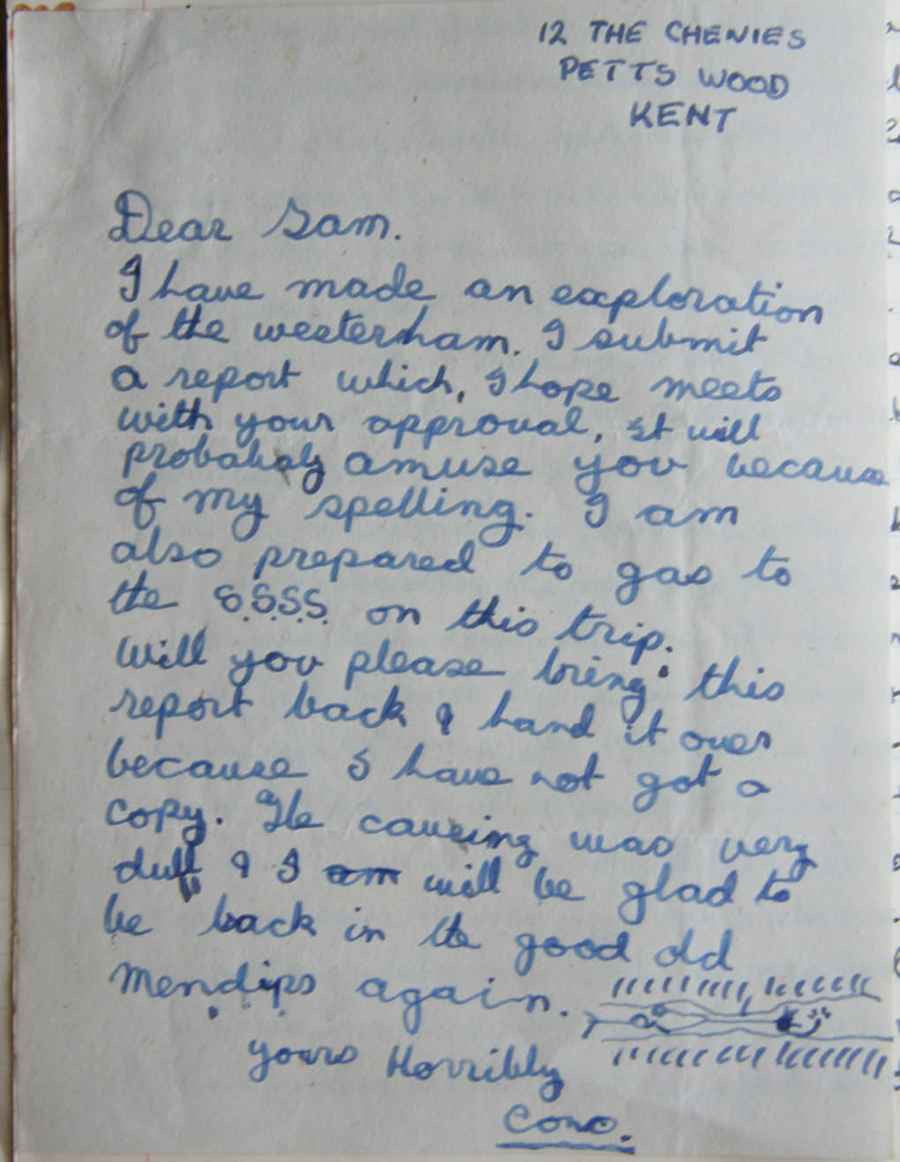 12 THE CHENIES
PETTS WOOD
KENT
Dear Sam.
I have made an exploration
of the westerham. I submit
a report which, I hope meets
with your approval, it will
probably amuse you because
of my spelling. I am
also prepared to gas to
the S.S.S.S. on this trip.
Will you please bring this
report back & hand it over
because I have not got a
copy. The caveing was very
dull & I am will be glad to
be back in the good old
Mendips again.
yours Horribly